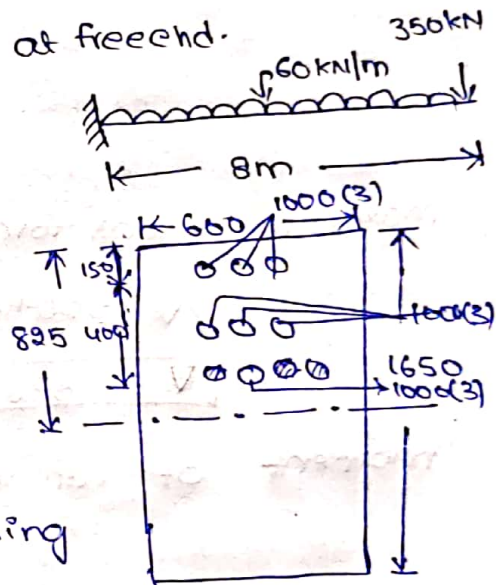 at freeend.
350kN
60kN/m
8m
1000(3)
600
150
825
400
1000(3)
1650
1000(3)
ing